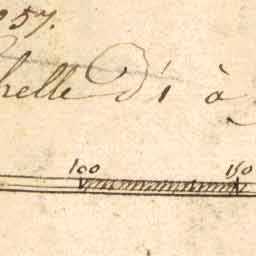 857.
helle d'1 à
100 150